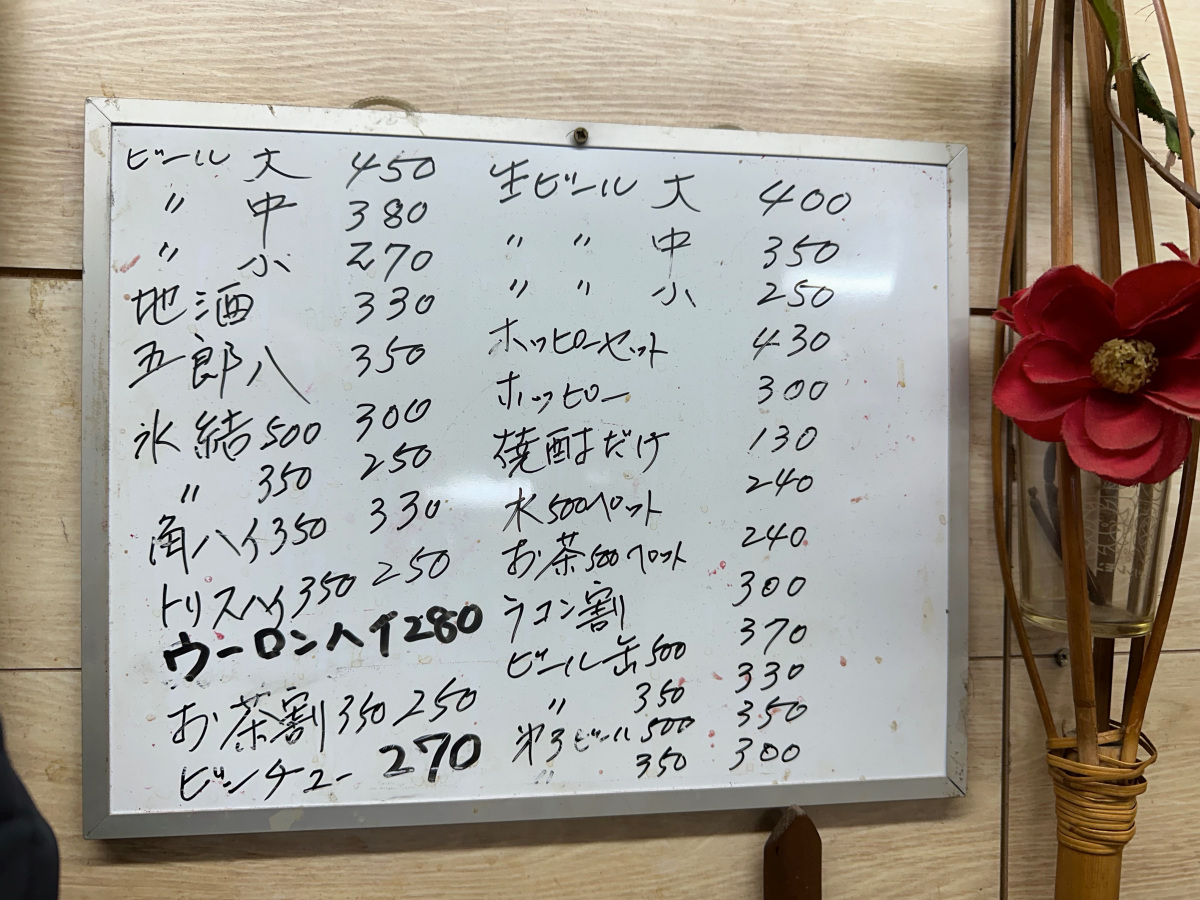 ビール 大 450
〃 中 380
〃 小 270
地酒 330
五郎八 350
氷結500 300
〃 350 250
角ハイ350 330
トリスハイ350 250
ウーロンハイ280
お茶割350 250
ビンチュー 270
生ビール 大 400
〃 〃 中 350
〃 〃 小 250
ホッピーセット 430
ホッピー 300
焼酎だけ 130
水500ペット 240
お茶500ペット 240
ラコン割 300
ビール缶500 370
〃 350 330
第3ビール500 350
〃 350 300